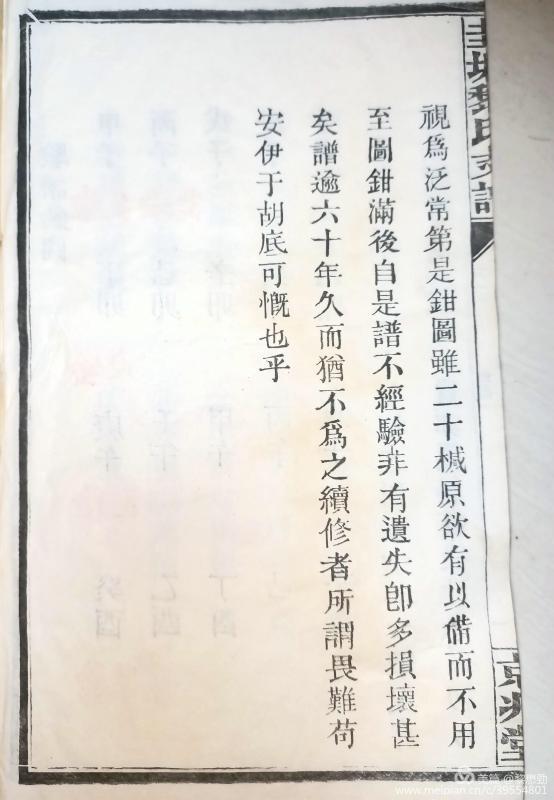 圭塘黎氏支譜
京兆堂
視爲泛常第是鉗圖雖二十椷原欲有以備而不用
至圖鉗滿後自是譜不經驗非有遺失卽多損壞甚
矣譜逾六十年久而猶不爲之續修者所謂畏難苟
安伊于胡底可慨也乎
美篇 @黎懋勁
www.meipian.cn/c/39554801